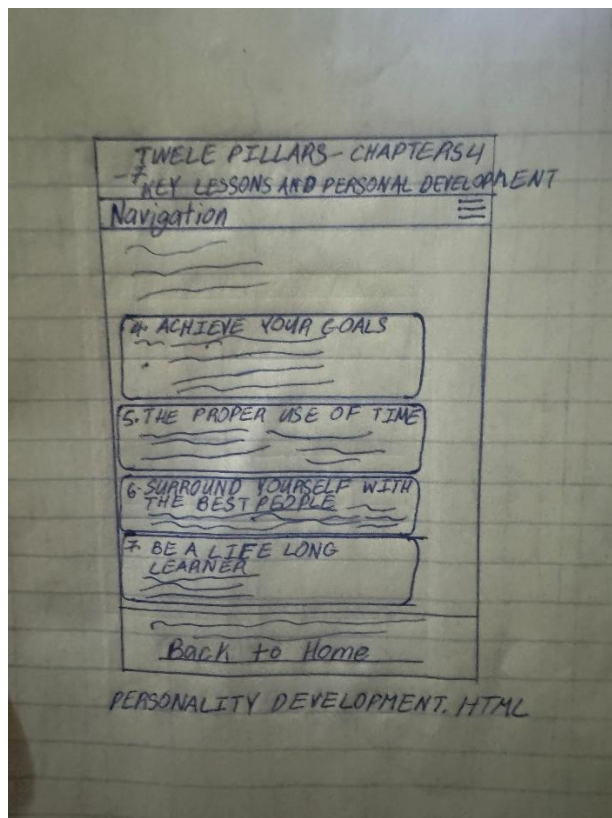 TWELE PILLARS - CHAPTERS 4
-7 KEY LESSONS AND PERSONAL DEVELOPMENT
Navigation
4. ACHIEVE YOUR GOALS
5. THE PROPER USE OF TIME
6. SURROUND YOURSELF WITH
THE BEST PEOPLE
7. BE A LIFE LONG
LEARNER
Back to Home
PERSONALITY DEVELOPMENT. HTML